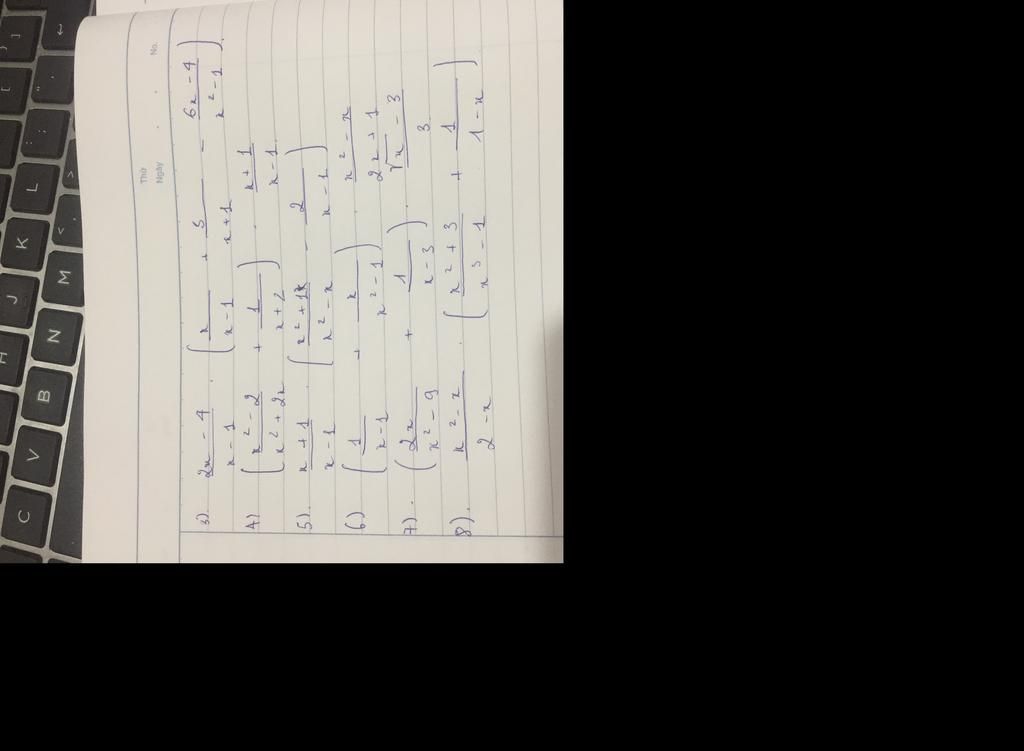 Thứ
Ngày
No.
3). \frac{2x - 4}{x - 1} . ( \frac{x}{x - 1} + \frac{3}{x + 1} - \frac{6x - 4}{x^2 - 1} ).
4) ( \frac{x^2 - 2}{x^2 + 2x} + \frac{1}{x + 2} ) . \frac{x + 1}{x - 1}
5). \frac{x + 1}{x - 1} . ( \frac{x^2 + 1}{x^2 - x} - \frac{2}{x - 1} )
6) ( \frac{1}{x - 1} + \frac{x}{x^2 - 1} ) . \frac{x^2 - x}{2x + 1}
7). ( \frac{2x}{x^2 - 9} + \frac{1}{x - 3} ) . \frac{\sqrt{x} - 3}{3}
8). \frac{x^2 - x}{2 - x} . ( \frac{x^2 + 3}{x^3 - 1} + \frac{1}{1 - x} )
C
V
B
N
M
< ,
>
H
J
K
L
: ;
" '
[